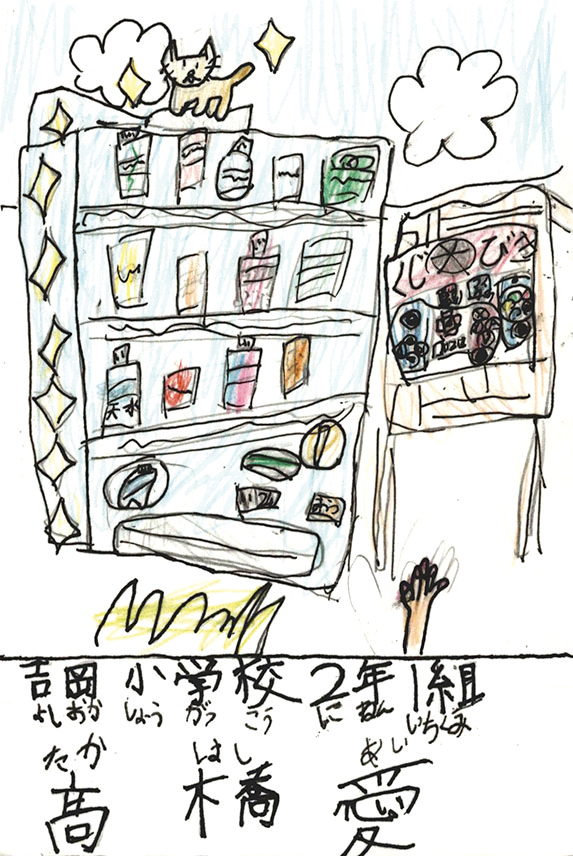 くじびき
天水
吉岡小学校2年1組
よしおかしょうがっこうにねんいちくみ
たかはしあい
高橋愛